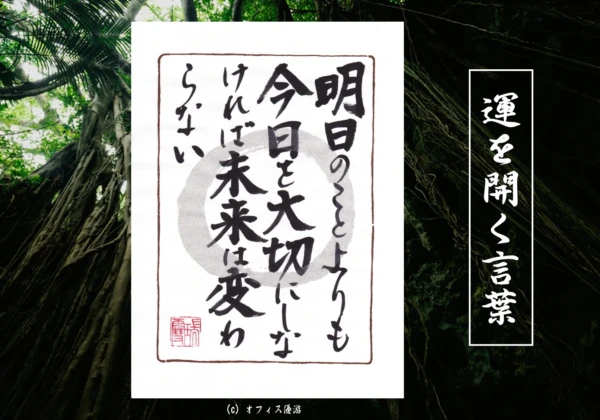 運を開く言葉
明日のことよりも
今日を大切にしな
ければ未来は変わ
らない
(C) オフィス優游